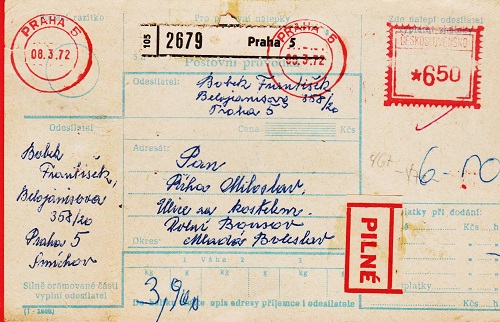 PRAHA 5
08.3.72
105
2679
Praha 5
PRAHA 5
08.3.72
Zde nalepí odesílatel
ČESKOSLOVENSKO
*650
Poštovní
Odesílatel:
Bobek František
Belojanisova 358/20
Praha 5
Cena
Kčs
Odesílatel
Bobek
František,
Belojanisova
358/20
Praha 5
Smíchov
Silně orámované části
vyplní odesílatel
Adresát:
Pan
Říha Miloslav,
Ulice za kostelem.
Dolní Bousov
Okres:
Mladá Boleslav
6-
PILNÉ
při dodání:
Kčs
I
Váha
I
kg
g
kg
g
kg
g
3,90
opis adresy příjemce i odesílatele